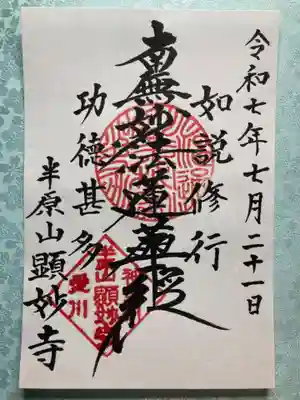 令和七年七月二十一日
如説修行
南無妙法蓮華経
功徳甚多
半原山顕妙寺
半原山
顕妙寺
愛川